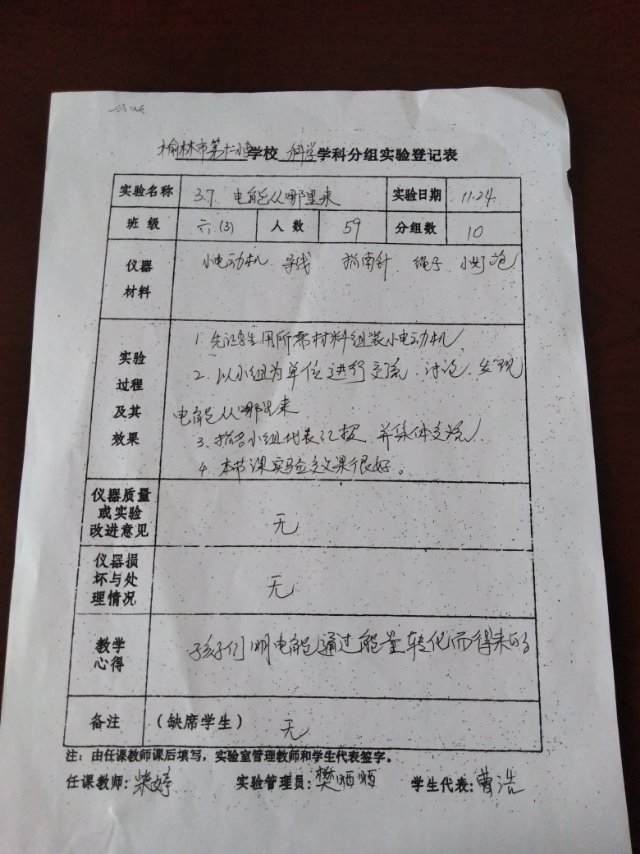 榆林市第十小学校 科学学科分组实验登记表
实验名称 3.7 电能从哪里来 实验日期 11.24
班 级 六(3) 人 数 59 分组数 10
仪器材料 小电动机 导线 指南针 绳子 小灯泡
实验过程及其效果 1. 先让学生用所带材料组装小电动机
2. 以小组为单位进行交流 讨论 发现
电能从哪里来
3. 指名小组代表汇报 并集体交流
4. 本节课实验效果很好。
仪器质量或实验改进意见 无
仪器损坏与处理情况 无
教学心得 孩子们明电能通过能量转化而得来的
备注 (缺席学生) 无
注:由任课教师课后填写,实验室管理教师和学生代表签字。
任课教师: 柴婷 实验管理员: 樊 学生代表: 曹浩